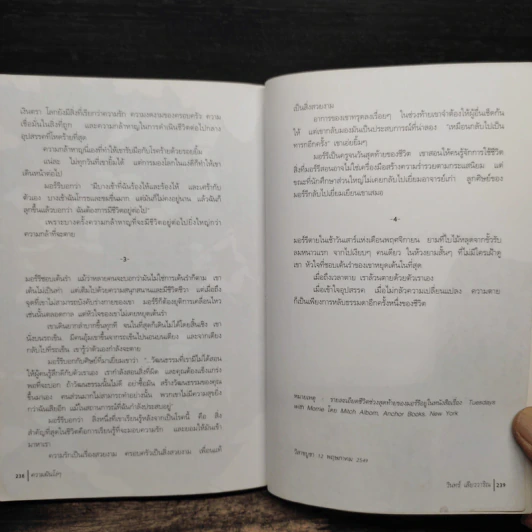 เงินตรา โลกยังมีสิ่งที่เรียกว่าความรัก ความงดงามของครอบครัว ความ
เชื่อมั่นในสิ่งที่ถูก และความกล้าหาญในการดำเนินชีวิตต่อไปกลาง
อุปสรรคที่โหดร้ายที่สุด
ความกล้าหาญที่ทำให้เขารับมือกับโรคร้ายด้วยรอยยิ้ม
แน่ละ ไม่ทุกวันที่เขายิ้มได้ แต่การมองโลกในแง่ดีก็ทำให้เขา
เดินหน้าต่อไป
มอร์รีบอกว่า "มีบางเช้าที่ฉันร้องไห้และร้องไห้ และเศร้ากับ
ตัวเอง บางเช้าฉันโกรธและขมขื่นมาก แต่มันก็ไม่คงอยู่นาน แล้วฉันก็
ลุกขึ้นแล้วบอกว่า ฉันต้องการมีชีวิตอยู่ต่อไป"
เพราะบางครั้งความกล้าหาญที่จะมีชีวิตอยู่ต่อไปยิ่งใหญ่กว่า
ความกล้าที่จะตาย
-3-
มอร์รีชอบเต้นรำ แม้ว่าหลายคนจะบอกว่ามันไม่ใช่การเต้นรำก็ตาม เขา
เต้นไม่เป็นท่า แต่เต็มไปด้วยความสนุกสนานและมีชีวิตชีวา แต่เมื่อถึง
จุดที่เขาไม่สามารถบังคับร่างกายของเขา มอร์รีก็ต้องยุติการเคลื่อนไหว
เช่นนั้นตลอดกาล แต่หัวใจของเขาไม่เคยหยุดเต้นรำ
เขาเดินยากลำบากขึ้นทุกที จนในที่สุดก็เดินไม่ได้โดยสิ้นเชิง เขา
นั่งบนรถเข็น มีคนอุ้มเขาขึ้นจากรถเข็นไปนอนบนเตียง และจากเตียง
กลับไปที่รถเข็น เขารู้ว่าตัวเองกำลังจะตาย
มอร์รีบอกกับศิษย์ที่มาเยี่ยมเขาว่า "...วัฒนธรรมที่เรามีไม่ได้สอน
ให้ผู้คนรู้สึกดีกับตัวเอง เรากำลังสอนสิ่งที่ผิด และคุณต้องแข็งแกร่ง
พอที่จะบอก ถ้าวัฒนธรรมนั้นไม่ดี อย่าซื้อมัน สร้างวัฒนธรรมของคุณ
ขึ้นมาเอง คนส่วนมากไม่สามารถทำอย่างนั้น พวกเขาไม่มีความสุขยิ่ง
กว่าฉันเสียอีก แม้ในสถานการณ์ที่ฉันกำลังประสบอยู่"
มอร์รีบอกว่า สิ่งหนึ่งที่เขาเรียนรู้หลังจากเป็นโรคนี้ คือ สิ่ง
สำคัญที่สุดในชีวิตคือการเรียนรู้ที่จะมอบความรัก และยอมให้มันเข้า
มาหาเรา
ความรักเป็นเรื่องสวยงาม ครอบครัวเป็นสิ่งสวยงาม เพื่อนแท้
238 ความฝันโง่ๆ
เป็นสิ่งสวยงาม
อาการของเขาทรุดลงเรื่อยๆ ในช่วงท้ายเขาจำต้องให้ผู้อื่นเช็ดก้น
ให้ แต่เขากลับมองมันเป็นประสบการณ์ที่น่าลอง "เหมือนกลับไปเป็น
ทารกอีกครั้ง" เขาเอ่ยยิ้มๆ
มอร์รีเป็นครูจนวันสุดท้ายของชีวิต เขาสอนให้คนรู้จักการใช้ชีวิต
สิ่งที่มอร์รีสอนอาจไม่ใช่เครื่องมือสร้างความร่ำรวยตามกระแสนิยม แต่
ขณะที่นักศึกษาส่วนใหญ่ไม่เคยกลับไปเยี่ยมอาจารย์เก่า ลูกศิษย์ของ
มอร์รีกลับไปเยี่ยมเยียนเขาเสมอ
-4-
มอร์รีตายในเช้าวันเสาร์แห่งเดือนพฤศจิกายน ยามที่ใบไม้หลุดจากขั้วรับ
ลมหนาวแรก จากไปเงียบๆ คนเดียว ในห้วงยามสั้นๆ ที่ไม่มีใครเฝ้าดู
เขา หัวใจที่ชอบเต้นรำของเขาหยุดเต้นในที่สุด
เมื่อถึงเวลาตาย เราล้วนตายด้วยตัวเราเอง
เมื่อเข้าใจอุปสรรค เมื่อไม่กลัวความเปลี่ยนแปลง ความตาย
ก็เป็นเพียงการหลับธรรมดาอีกครั้งหนึ่งของชีวิต
หมายเหตุ : รายละเอียดชีวิตช่วงสุดท้ายของมอร์รีอยู่ในหนังสือเรื่อง Tuesdays
with Morrie โดย Mitch Albom, Anchor Books, New York
วิสาขบูชา 12 พฤษภาคม 2549
วินทร์ เลียววาริณ 239